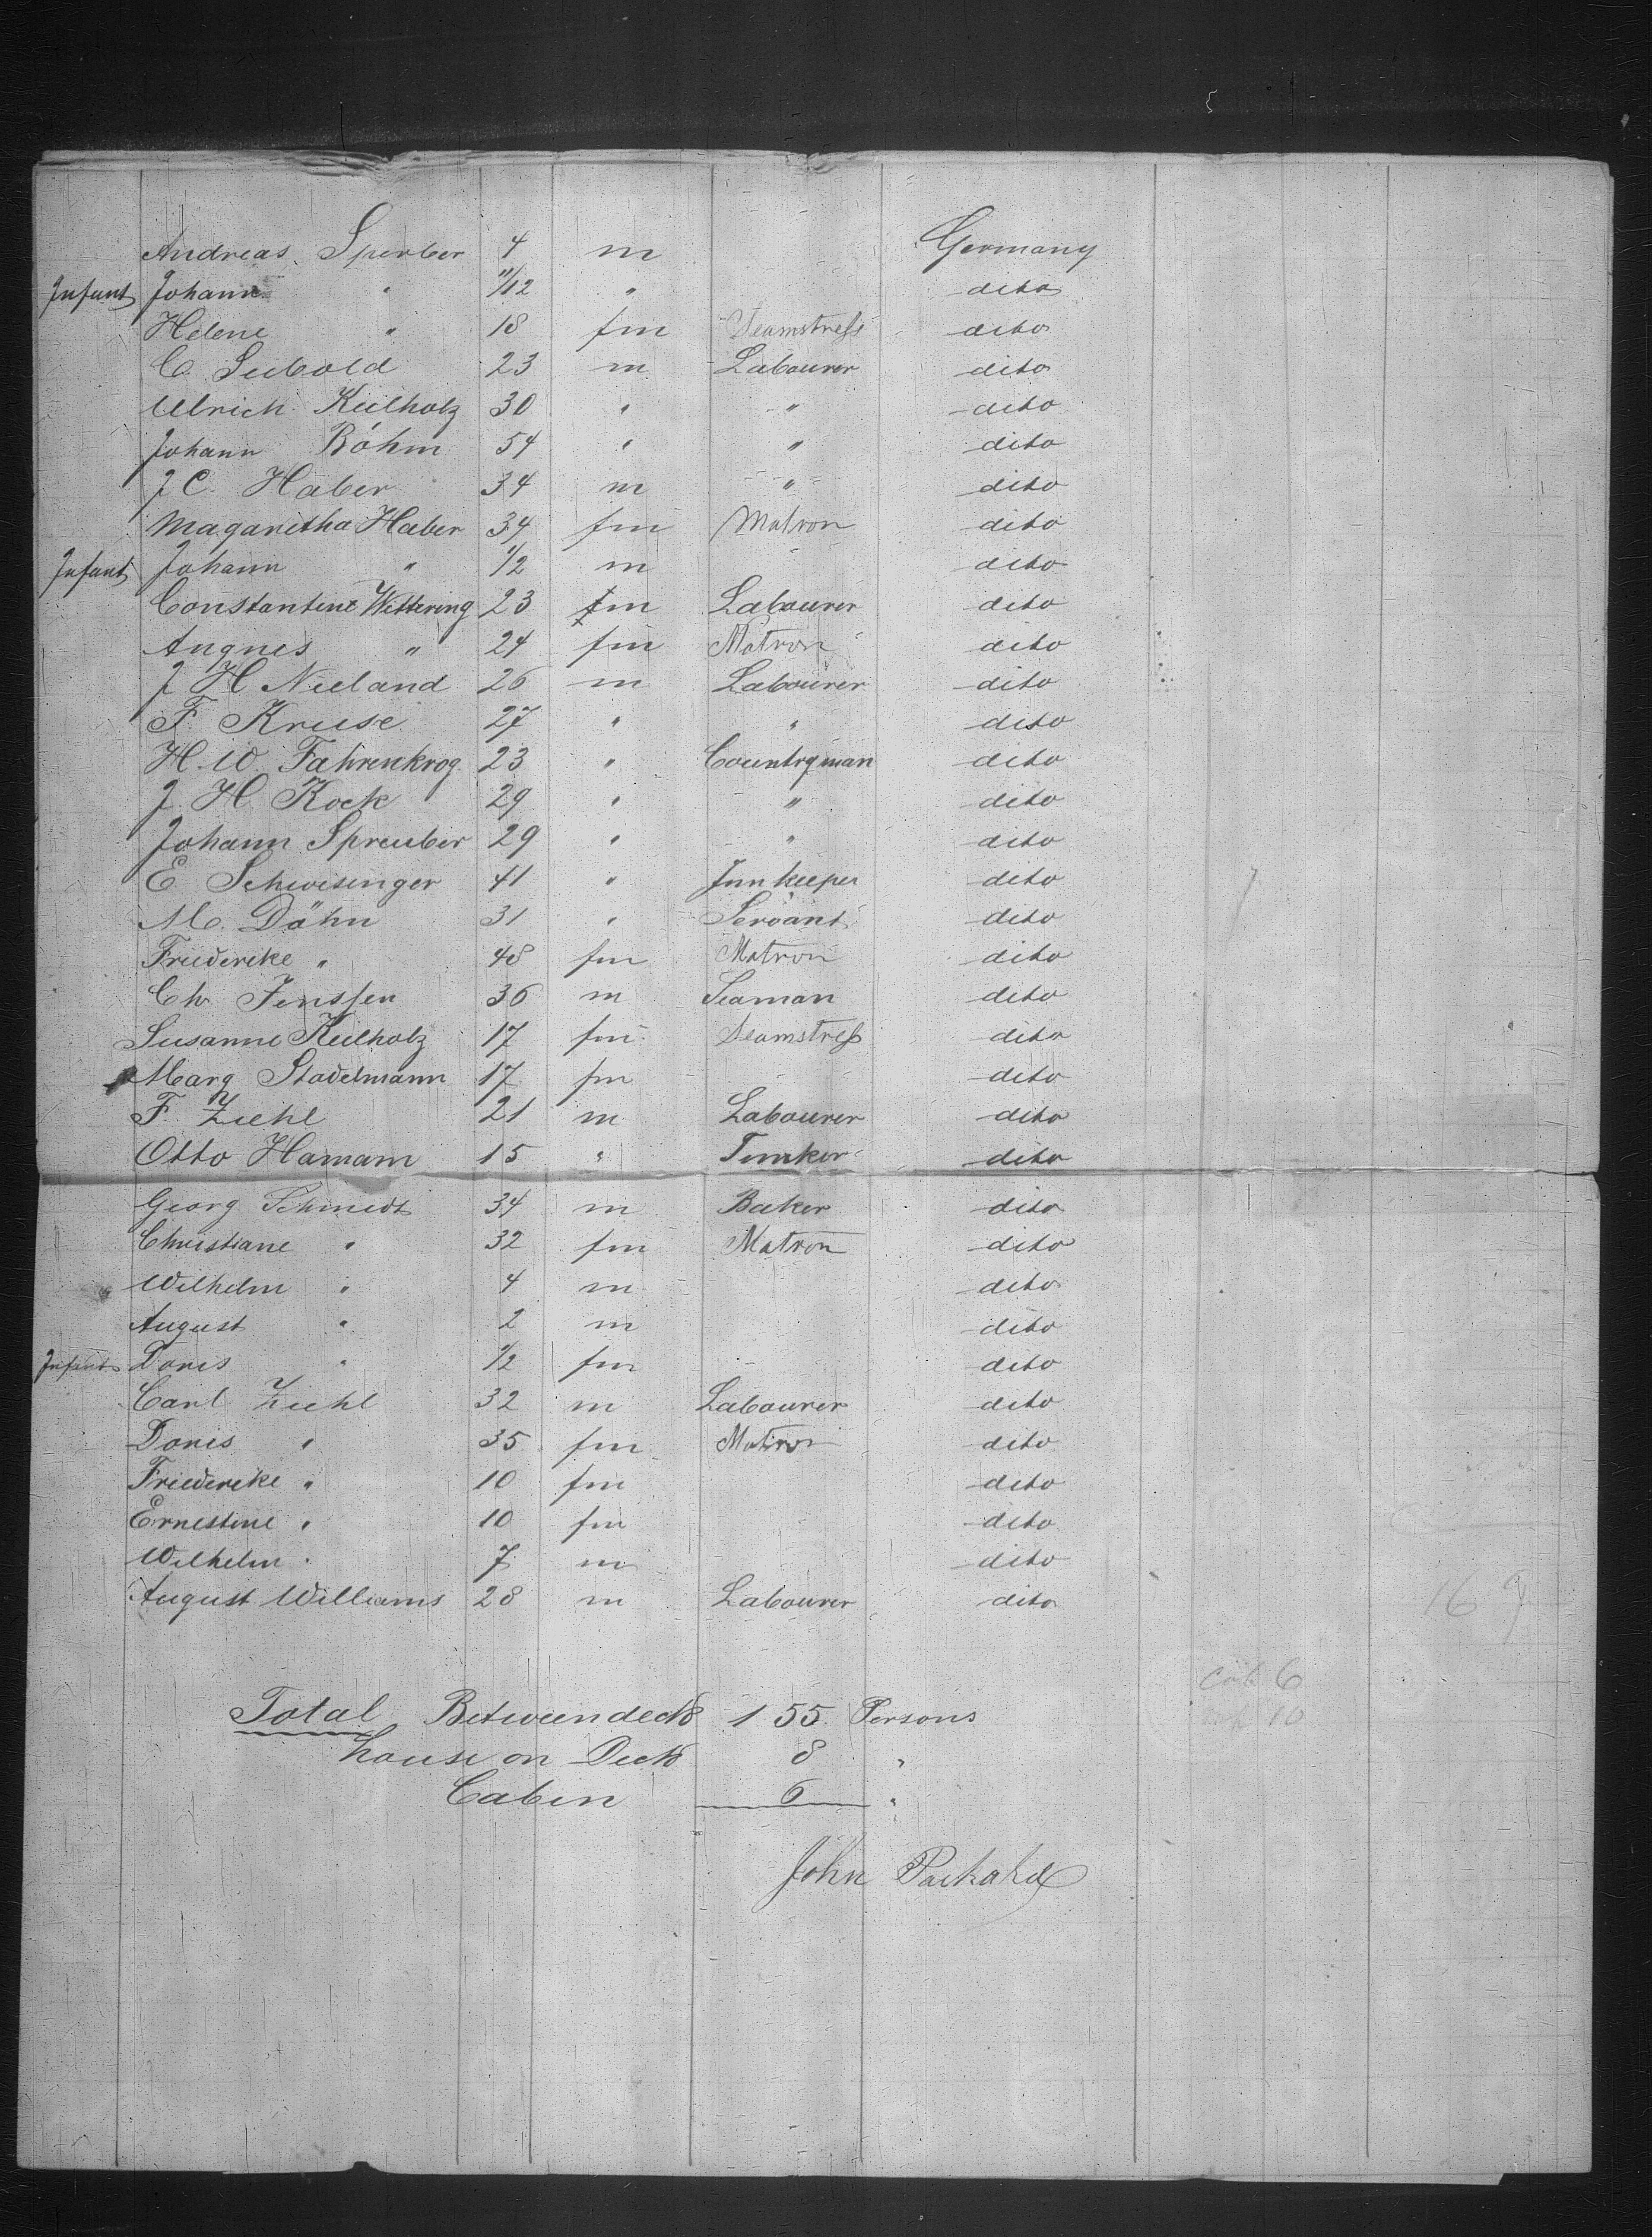 Andreas Sperber 4 m Germany
Infant Johann " 11/12 " dito
Helene " 18 fm Seamstress dito
C. Seebold 23 m Labourer dito
Ulrich Keilholz 30 " " dito
Johann Böhm 54 " " dito
J C. Haber 34 m " dito
Magaretha Haber 34 fm Matron dito
Infant Johann " 1/2 m dito
Constantine Wettering 23 fm Labourer dito
Angnes " 24 fm Matron dito
J H Nieland 26 m Labourer dito
F. Kruse 27 " " dito
H. W. Fahrenkrog 23 " Countryman dito
J. H. Kock 29 " " dito
Johann Spreuber 29 " " dito
E Schwesinger 41 " Innkeeper dito
M. Dähn 31 " Servant dito
Friederike " 48 fm Matron dito
Ch. Jenssen 36 m Seaman dito
Susanne Keilholz 17 fm Seamstress dito
Marg Stadelmann 17 fm dito
F. Ziehl 21 m Labourer dito
Otto Hamann 15 " dito
Georg Schmidt 34 m Baker dito
Christiane " 32 fm Matron dito
Wilhelm " 4 m dito
August " 2 m dito
Infant Doris " 1/2 fm dito
Carl Ziehl 32 m Labourer dito
Doris " 35 fm Matron dito
Friederike " 10 fm dito
Ernestine " 10 fm dito
Wilhelm " 7 m dito
August Williams 28 m Labourer dito
169
Total Betweendeck 155 Persons
house on Deck 8 "
Cabin 6 "
Cab 6
10
John Packard